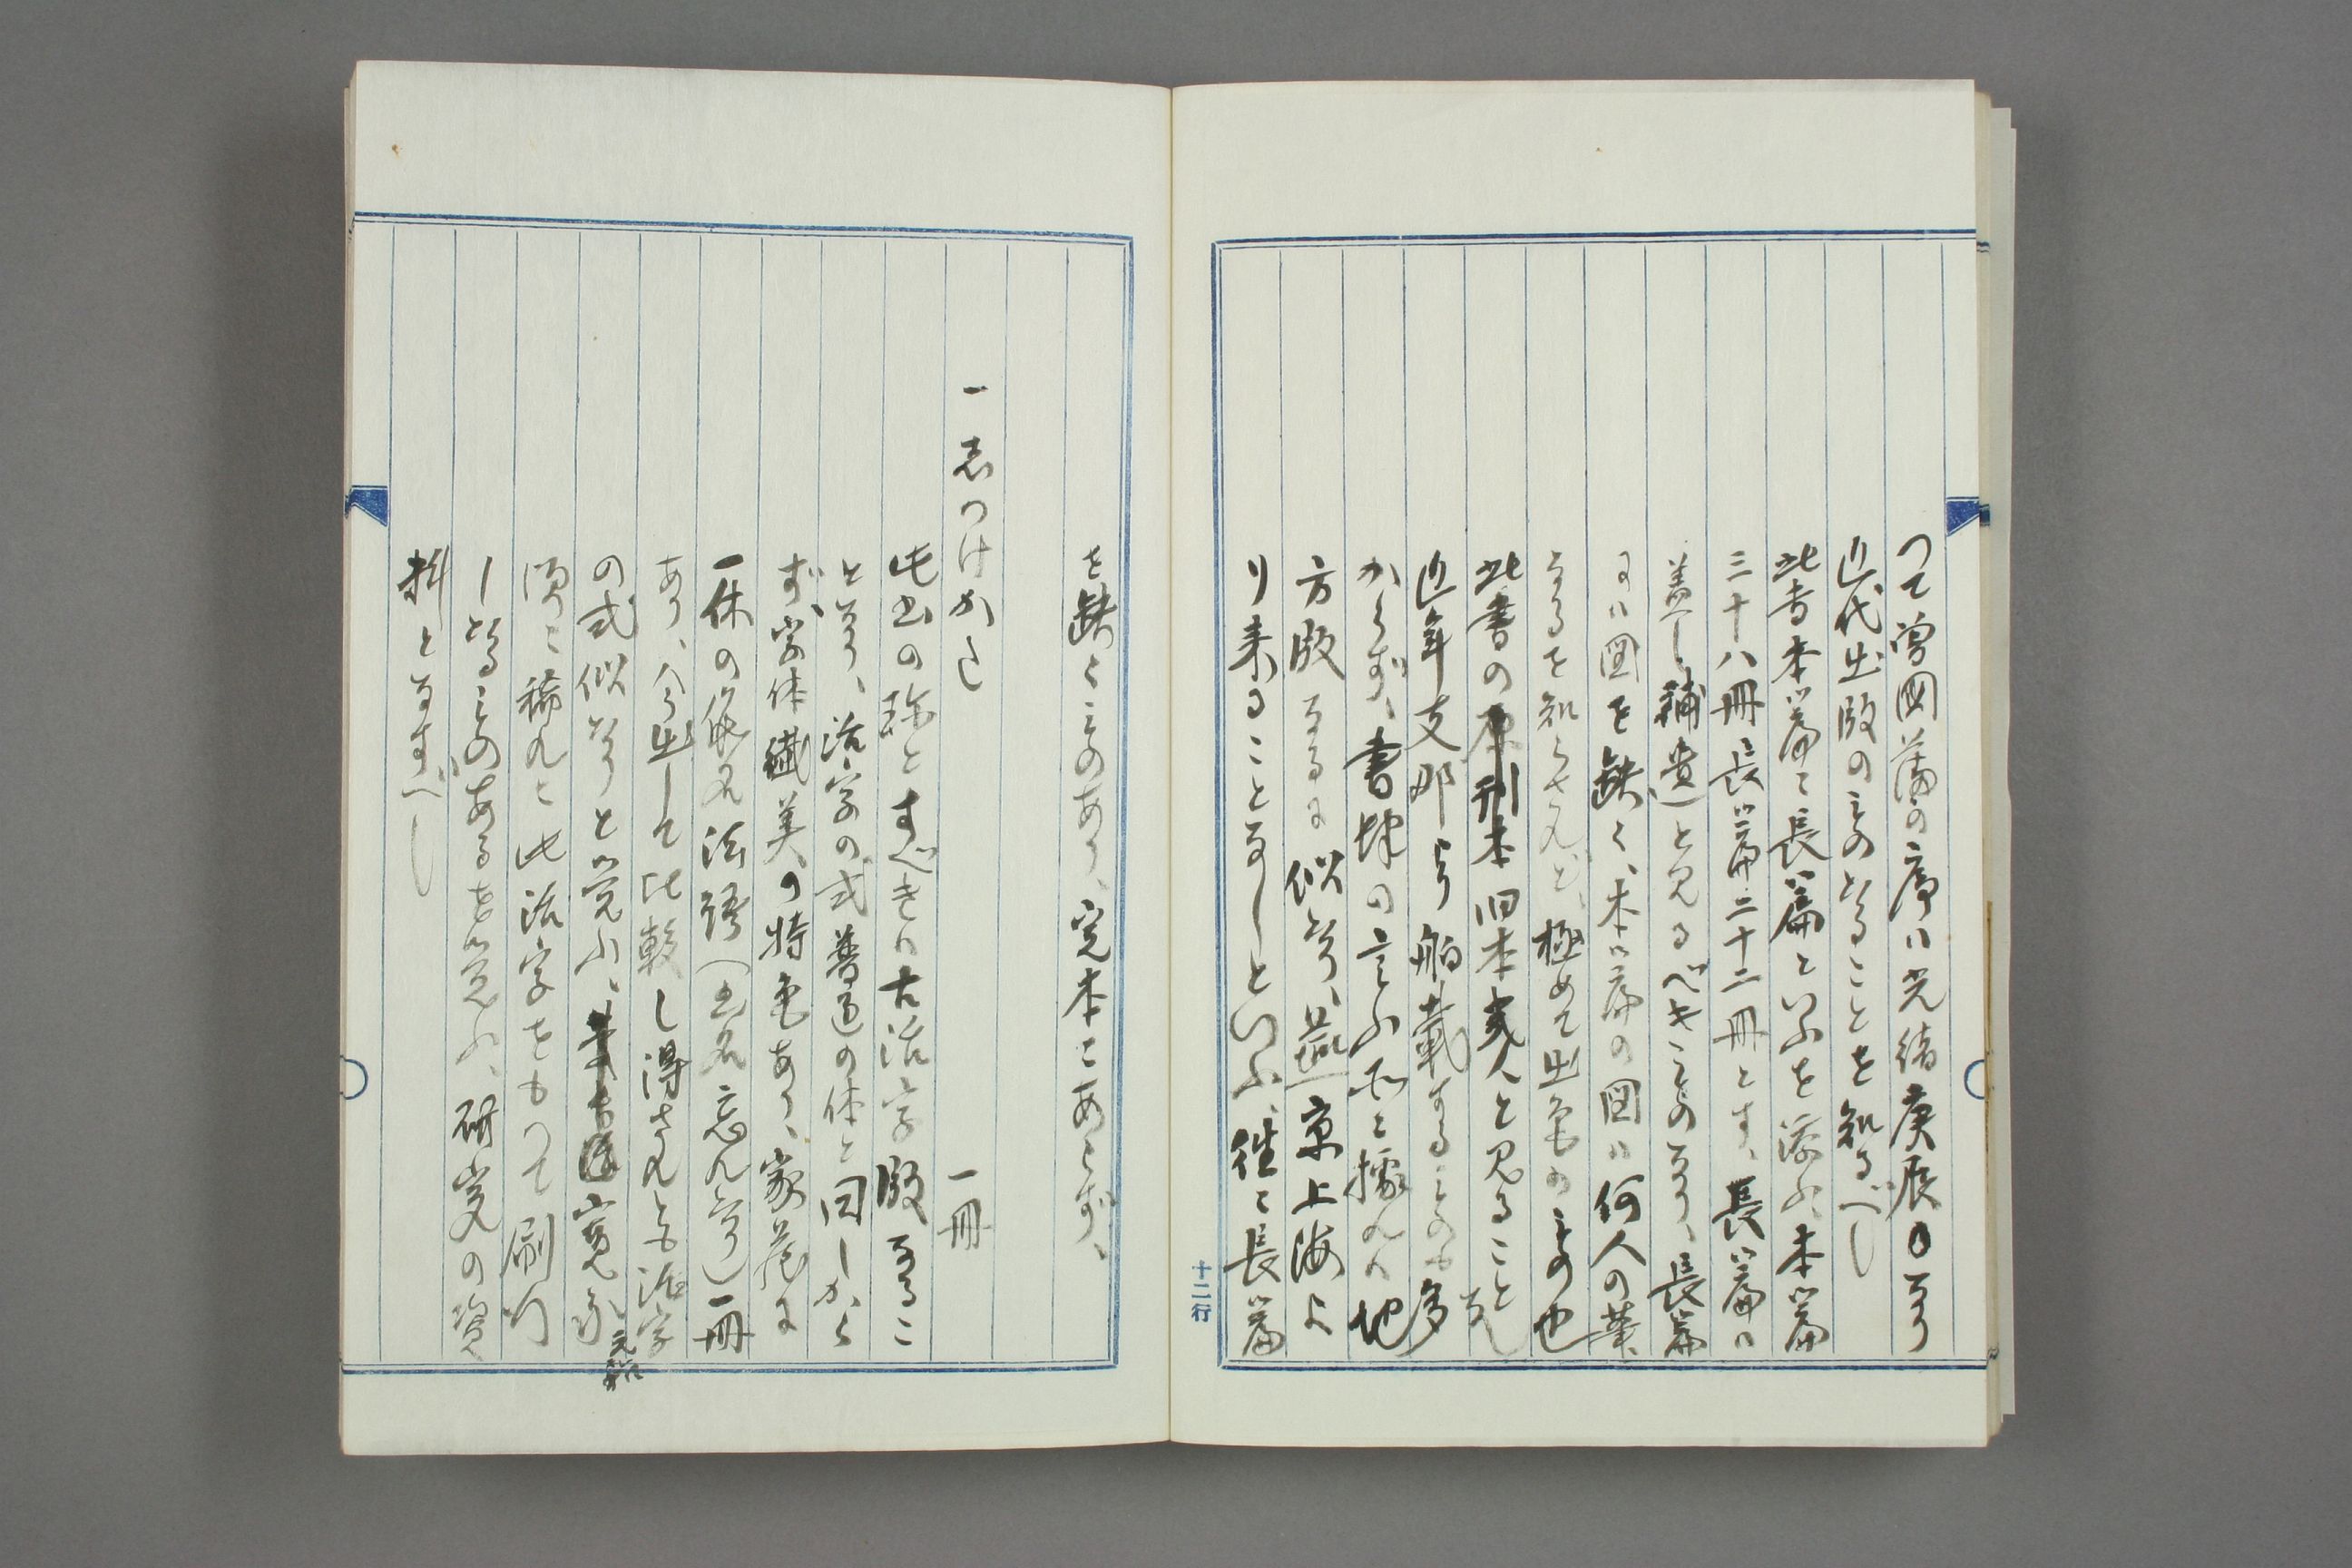 つて曽国藩の序は光緒庚辰なり
近代出版のものなることを知るべし
此書本篇と長篇といふを添ふ、本篇
三十八冊長篇二十二冊とす、長篇は
蓋し補遺と見るべきものなり、長篇
には図を缺く、本篇の図は何人の筆
なるを知らざれど、極めて出色のもの也
此書の原刊本旧本或人と見ること なし
近年支那より舶載するものも多
からず、書肆の言ふ所に據れは地
方版なるに似たり、燕京上海よ
り来ることなしといふ、往々長篇
十二行
を缺くものあり、完本にあらず、
一 志つけかた 一冊
此書の珍とすべきは古活字版なるこ
となり、活字の式普通の体と同しから
ず、字体繊美の特色あり、家蔵に
一休の仮名法語(書名忘れたり)一冊
あり、今出して比較し得されとも活字
の式似たりと覚ふ、寛永 元和
間に稀れに此活字をもつて刷行
したるものあるを覚ふ、研究の資
料となすべし